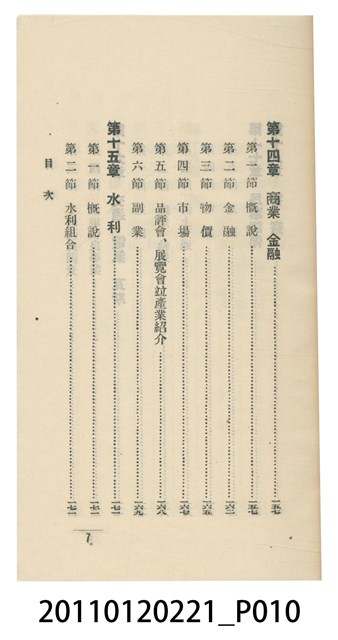 第十四章 商業 金融…………一五七
第一節 概說…………一五七
第二節 金融…………一六二
第三節 物價…………一六五
第四節 市場…………一六七
第五節 品評會、展覽會竝產業紹介…………一六八
第六節 副業…………一六九
第十五章 水利…………一七一
第一節 概說…………一七一
第二節 水利組合…………一七二
目次
7
20110120221_P010